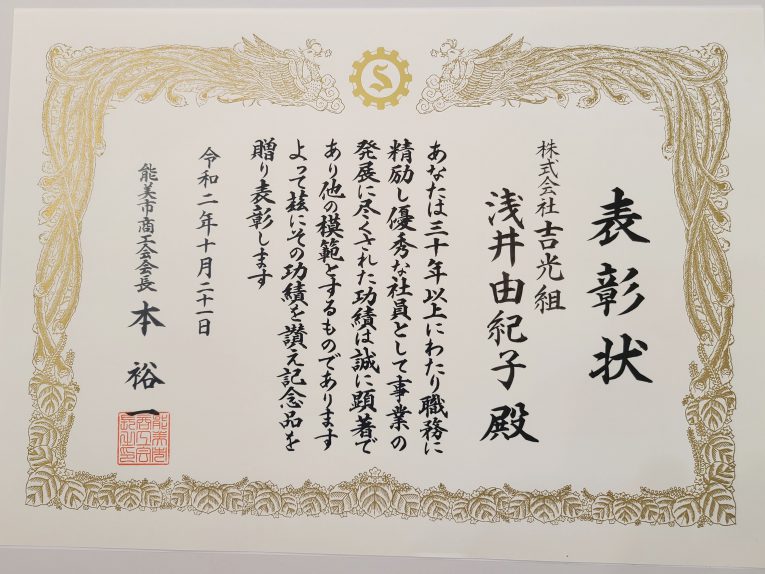 表彰状
株式会社吉光組
浅井由紀子殿
あなたは三十年以上にわたり職務に
精励し優秀な社員として事業の
発展に尽くされた功績は誠に顕著で
あり他の模範とするものであります
よって茲にその功績を讃え記念品を
贈り表彰します
令和二年十月二十一日
能美市商工会会長 本裕一
能美市
商工会
長之印